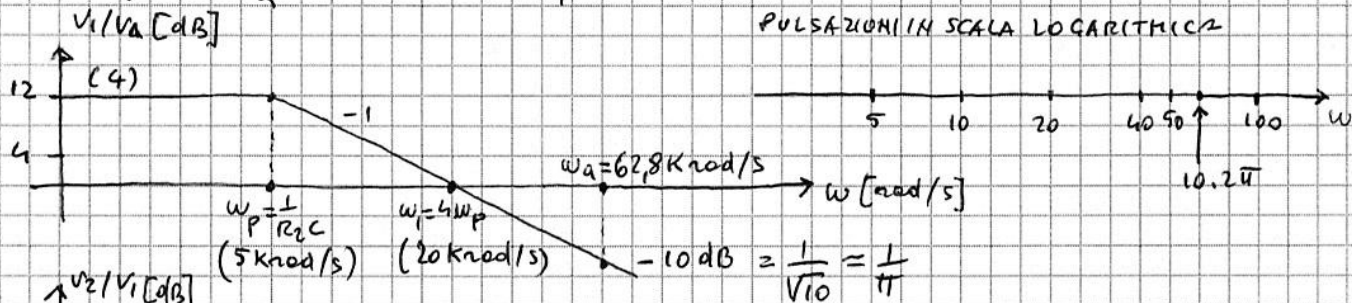 V1/VA [dB]
PULSAZIONI IN SCALA LOGARITMICA
12
(4)
-1
4
5 10 20 40 50 100 ω
10·2π
ωa=62,8Krad/s
ω [rad/s]
ωp=1/R2C
ω1=4ωp
(5Krad/s)
(20Krad/s)
-10dB = 1/√10 ≈ 1/π
V2/V1[dB]